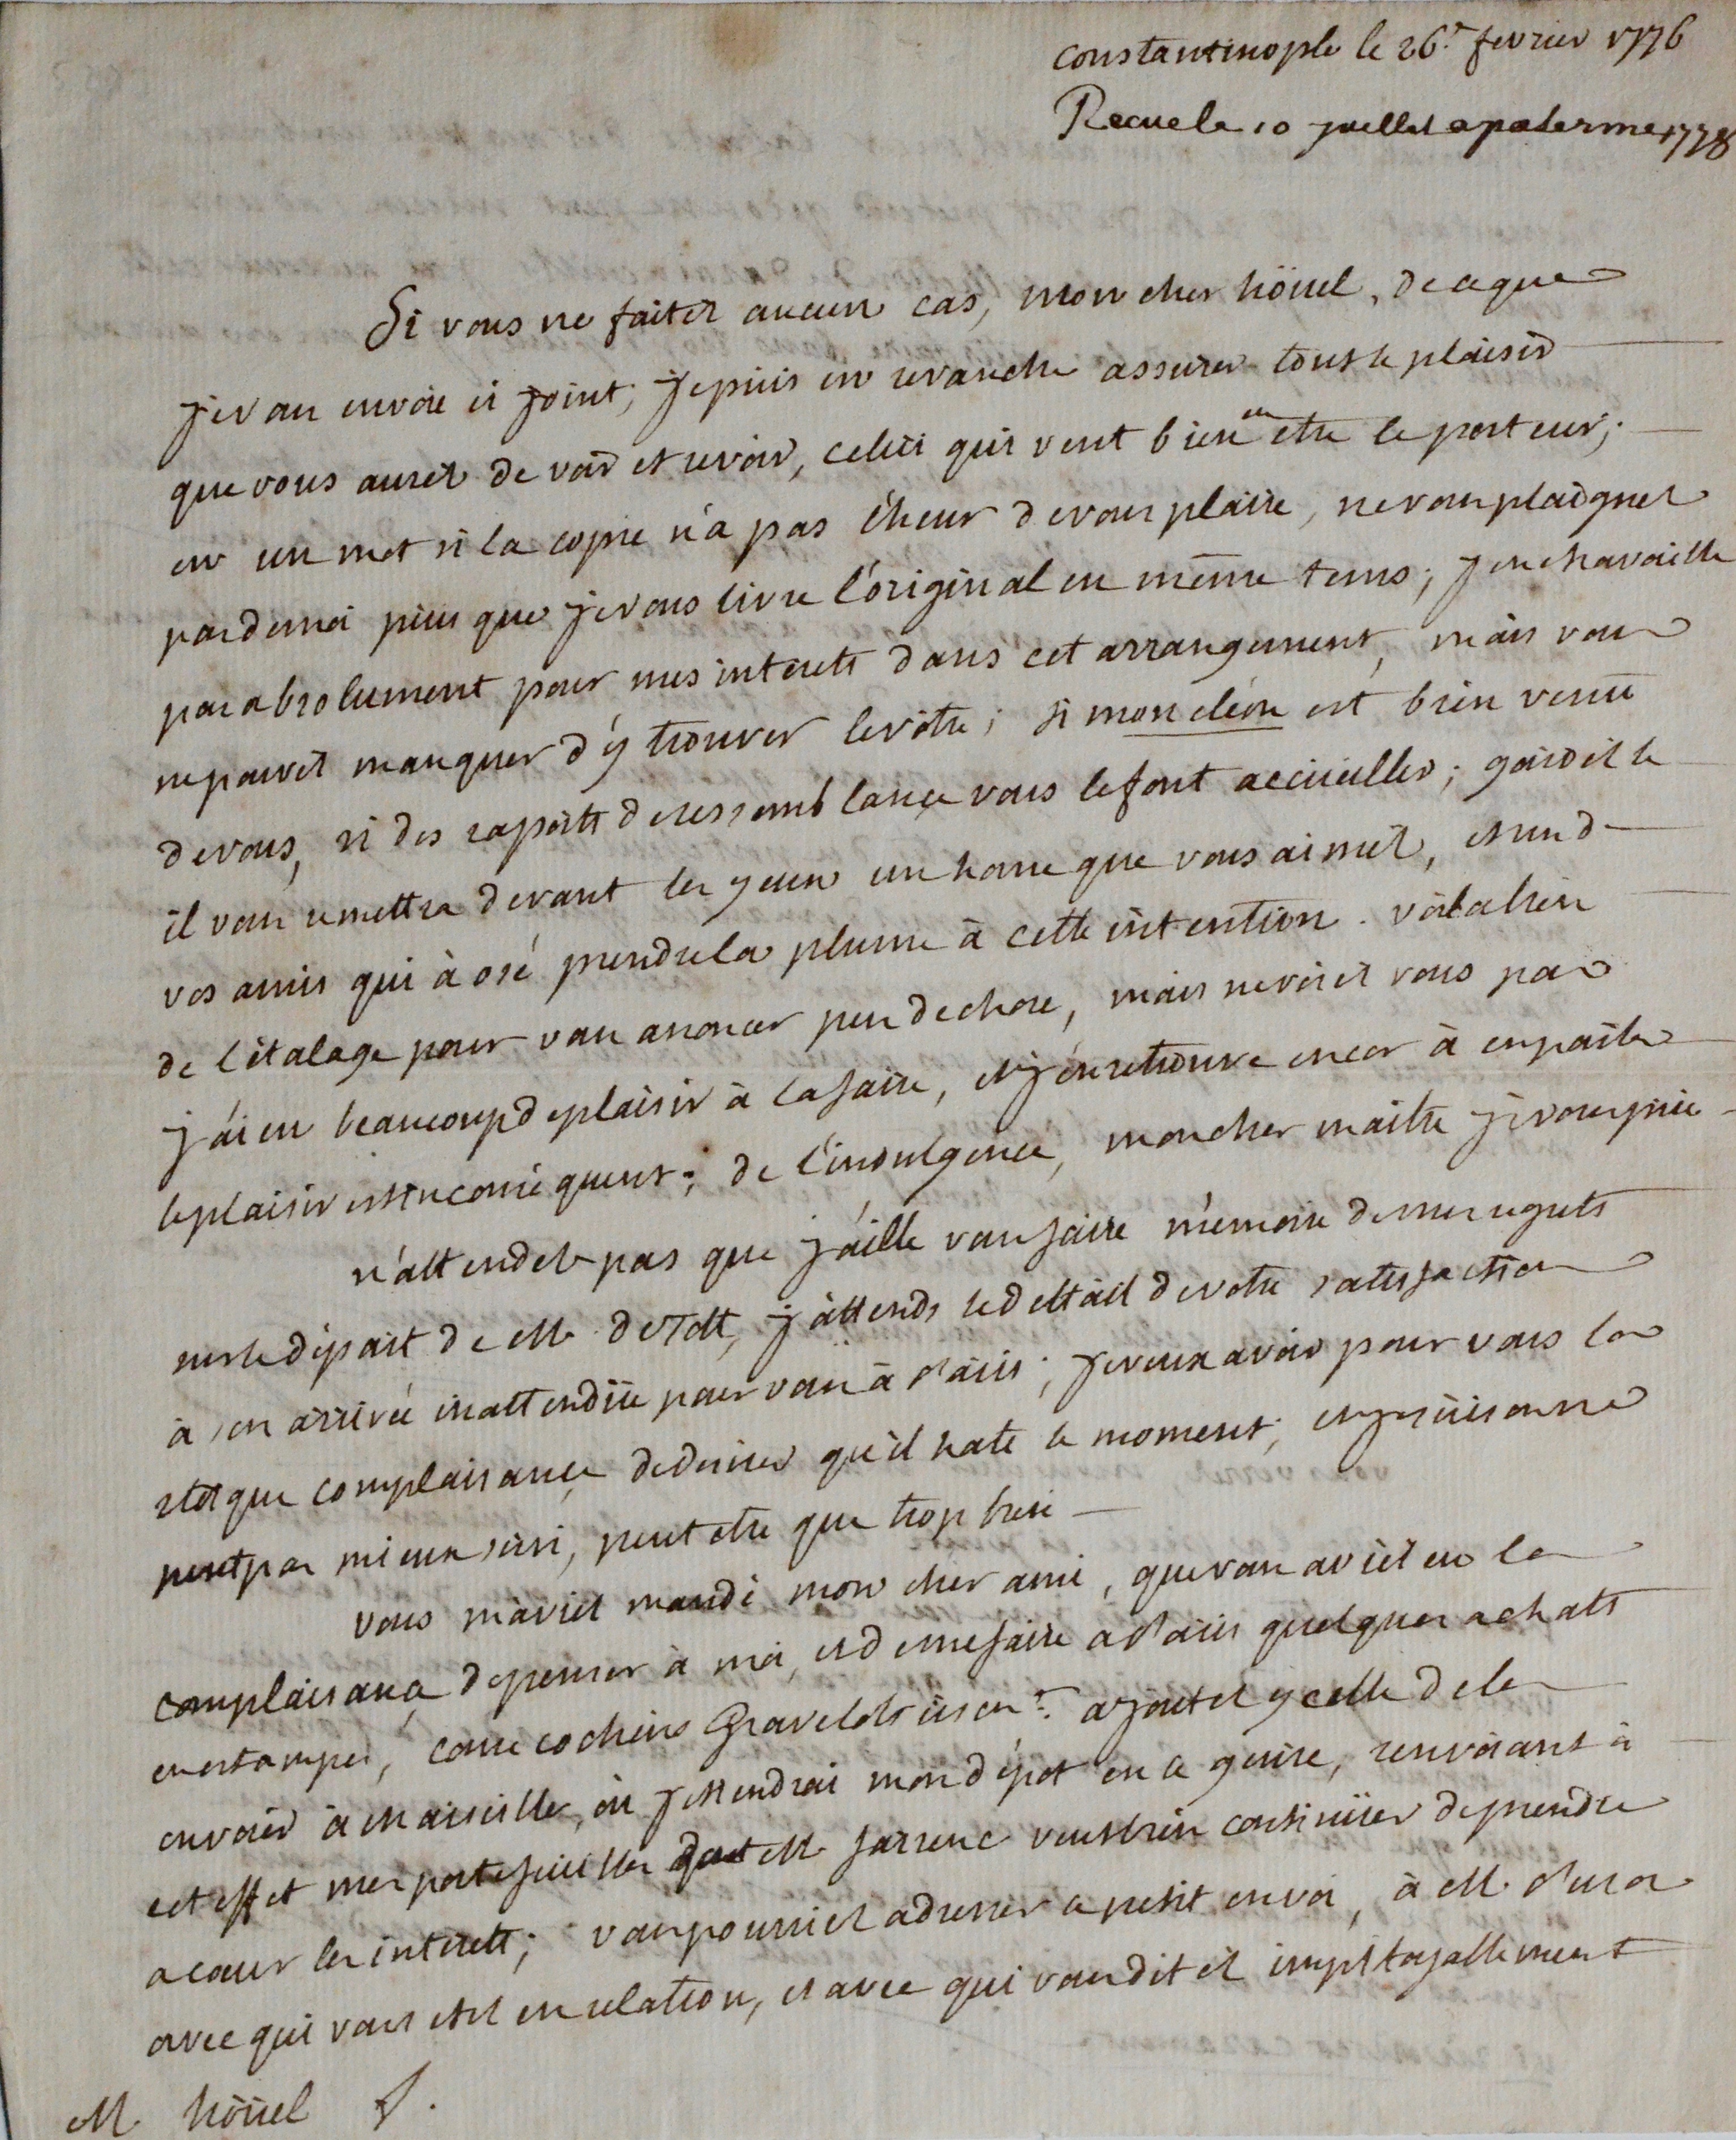 constantinople le 26.r fevrier 1776
Recue le 10 juellet a palerme 1778
Si vous ne faites aucun cas, mon cher höuel, de ce que
je vous envoie ci joint, je puis en revanche assurer tout le plaisir
que vous aurez de voir et revoir, celui qui veut bien en etre le porteur;
en un mot si la copie n'a pas l'heur de vous plaire, ne vous plaignez
pas de moi puis que je vous livre l'original en même tems; je ne travaille
pas absolument pour mes interets dans cet arrangement, mais vous
ne pouvez manquer d'y trouver le vôtre; si mon cléon est bien venu
de vous, si des raports de ressemblance vous le font accüeiller; gardez le
il vous remettra devant les yeux un home que vous aimez, et un de
vos amis qui à osé prendre la plume à cette intention. voila bien
de l'étalage pour vous anoncer peu de chose, mais ne voiez vous pas
j'ai eu beaucoup de plaisir à la faire, et j'en retrouve encor à en parler
le plaisir est inconséquent; de l'indulgence, mon cher maitre je vous prie
n'attendez pas que j'aille vous faire mémoire de mes regrets
sur le départ de M. de Tott, j'attends le détail de votre satisfaction
à son arrivée inattendüe pour vous à Paris; je veux avoir pour vous la
stoique complaisance de desirer qu'il hate le moment, et je räisonne
peut pas mieux ici, peut etre que trop bien
vous m'aviez mandé mon cher ami, que vous aviez eu la
complaisance de penser à moi, et de me faire a Paris quelques achats
en estampes, come cochins Gravelots eisen.s ajoutez y celle de les
envoier à Marseille, où je tiendrai mon dépot en ce genre, renvoiant à
cet effet mes portefeuilles dont M. Sarrenc veut bien continüer de prendre
a coeur les interets; vous pourriez adresser ce petit envoi, à M.
avec qui vous etes en relation, et avec qui vous dites
M. höüel P.